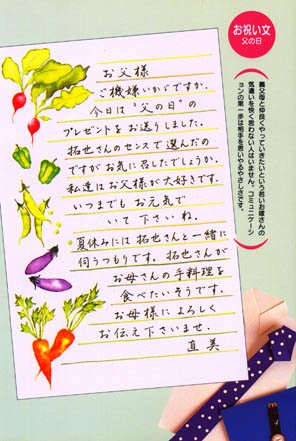 お祝い文
父の日
義父母と仲良くやっていきたいという若いお嫁さんの
気遣いを快く思わない人はいません。コミュニケーシ
ョンの第一歩は相手を思いやるやさしさです。
お父様
ご機嫌いかがですか。
今日は“父の日”の
プレゼントをお送りしました。
拓也さんのセンスで選んだの
ですがお気に召したでしょうか。
私達はお父様が大好きです。
いつまでもお元気で
いて下さいね。
夏休みには拓也さんと一緒に
伺うつもりです。拓也さんが
お母さんの手料理を
食べたいそうです。
お母様によろしく
お伝え下さいませ。
直美